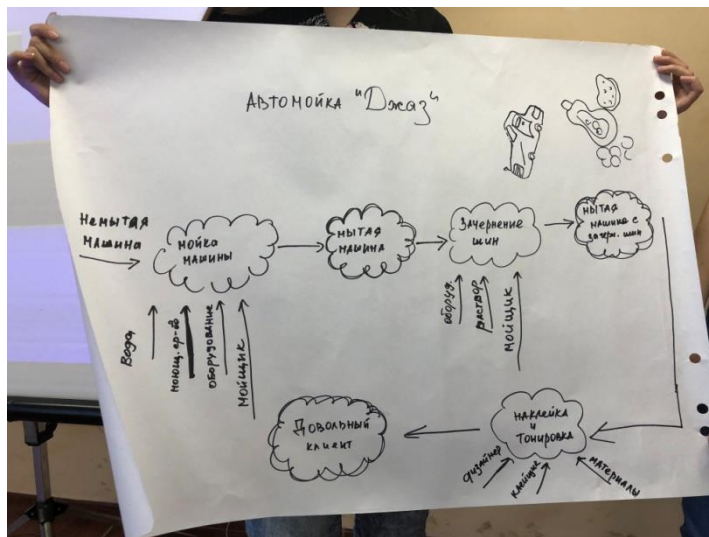 Автомойка "Джаз"
Немытая
машина
мойка
машины
мытая
машина
Зачернение
шин
мытая
машина с
зачерн. шин
Вода
моющ. ср-ва
оборудование
мойщик
оборуд.
раствор
мойщик
Довольный
клиент
наклейка
и
тонировка
дизайнер
клейщик
материалы